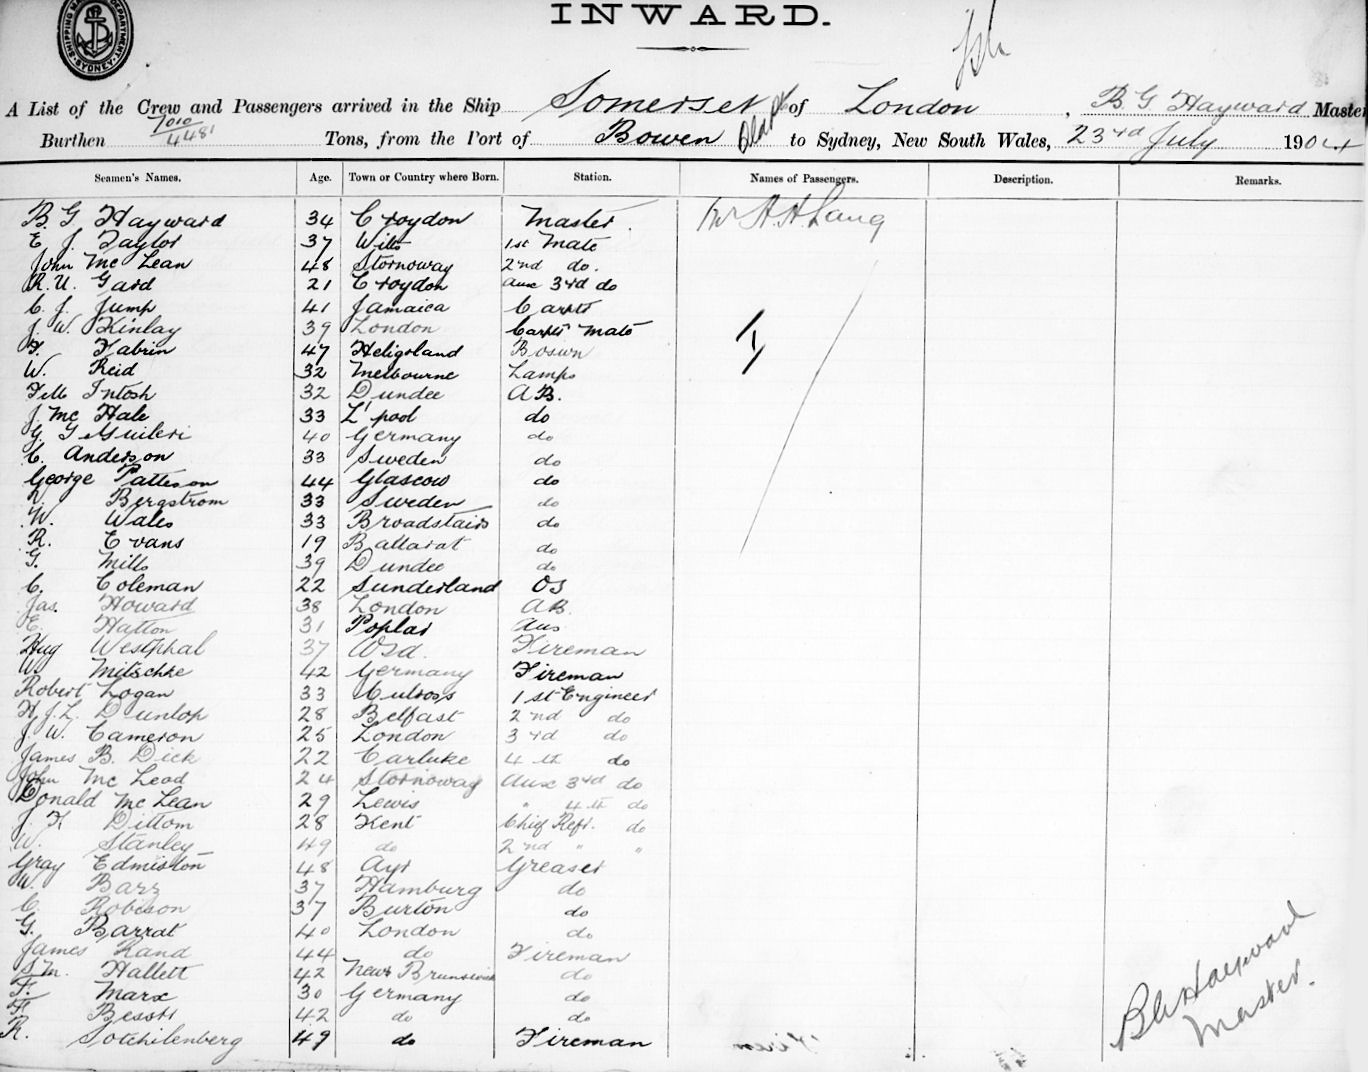 SHIPPING MASTER'S DEPARTMENT. SYDNEY
INWARD.
A List of the Crew and Passengers arrived in the Ship Somerset of London, B G Hayward Master
Burthen 7010 / 4481 Tons, from the Port of Bowen to Sydney, New South Wales, 23rd July 1904
Seamen's Names. Age. Town or Country where Born. Station. Names of Passengers. Description. Remarks.
B. G Hayward 34 Croydon Master Mr H. H. Lang
E J. Taylor 37 Wilts 1st Mate
John Mc Lean 48 Stornoway 2nd do.
R. U. Gard 21 Croydon aux 3rd do
C. J. Jump 41 Jamaica Carptr
J. W. Kinlay 39 London Carptr Mate
F. Fabrin 47 Heligoland Bosun
W. Reid 32 Melbourne Lamps
F Mc Intosh 32 Dundee AB.
J. Mc Hale 33 L'pool do
G. 40 Germany do
C. Anderson 33 Sweden do
George Patteson 44 Glascow do
Bergstrom 33 Sweden do
W. Wales 33 Broadstairs do
R. Evans 19 Ballarat do
G. Mills 39 Dundee do
C. Coleman 22 Sunderland OS
Jas. Howard 38 London AB.
E. Hatton 31 Poplar
Hug Westphal 37 Fireman
W. Mitschke 42 Germany Fireman
Robert Logan 33 Culross 1st Engineer
H. J. L. Dunlop 28 Belfast 2nd do
J. W. Cameron 25 London 3rd do
James B. Dick 22 Carluke 4th do
John Mc Leod 24 Stornoway Aux 3rd do
Donald Mc Lean 29 Lewis " 4th do
J. H Dittom 28 Kent Chief Refr. do
W. Stanley 49 do 2nd " "
Gray Edmiston 48 Ayr Greaser
W. Barz 37 Hamburg do
C. Robeson 37 Burton do
G. Barrat 40 London do
James Rand 44 do Fireman
S. M. Hallett 42 New Brunswick do
F. Marx 30 Germany do
F. 42 do do
R. Sotchilenberg 49 do Fireman
Hayward
Master.